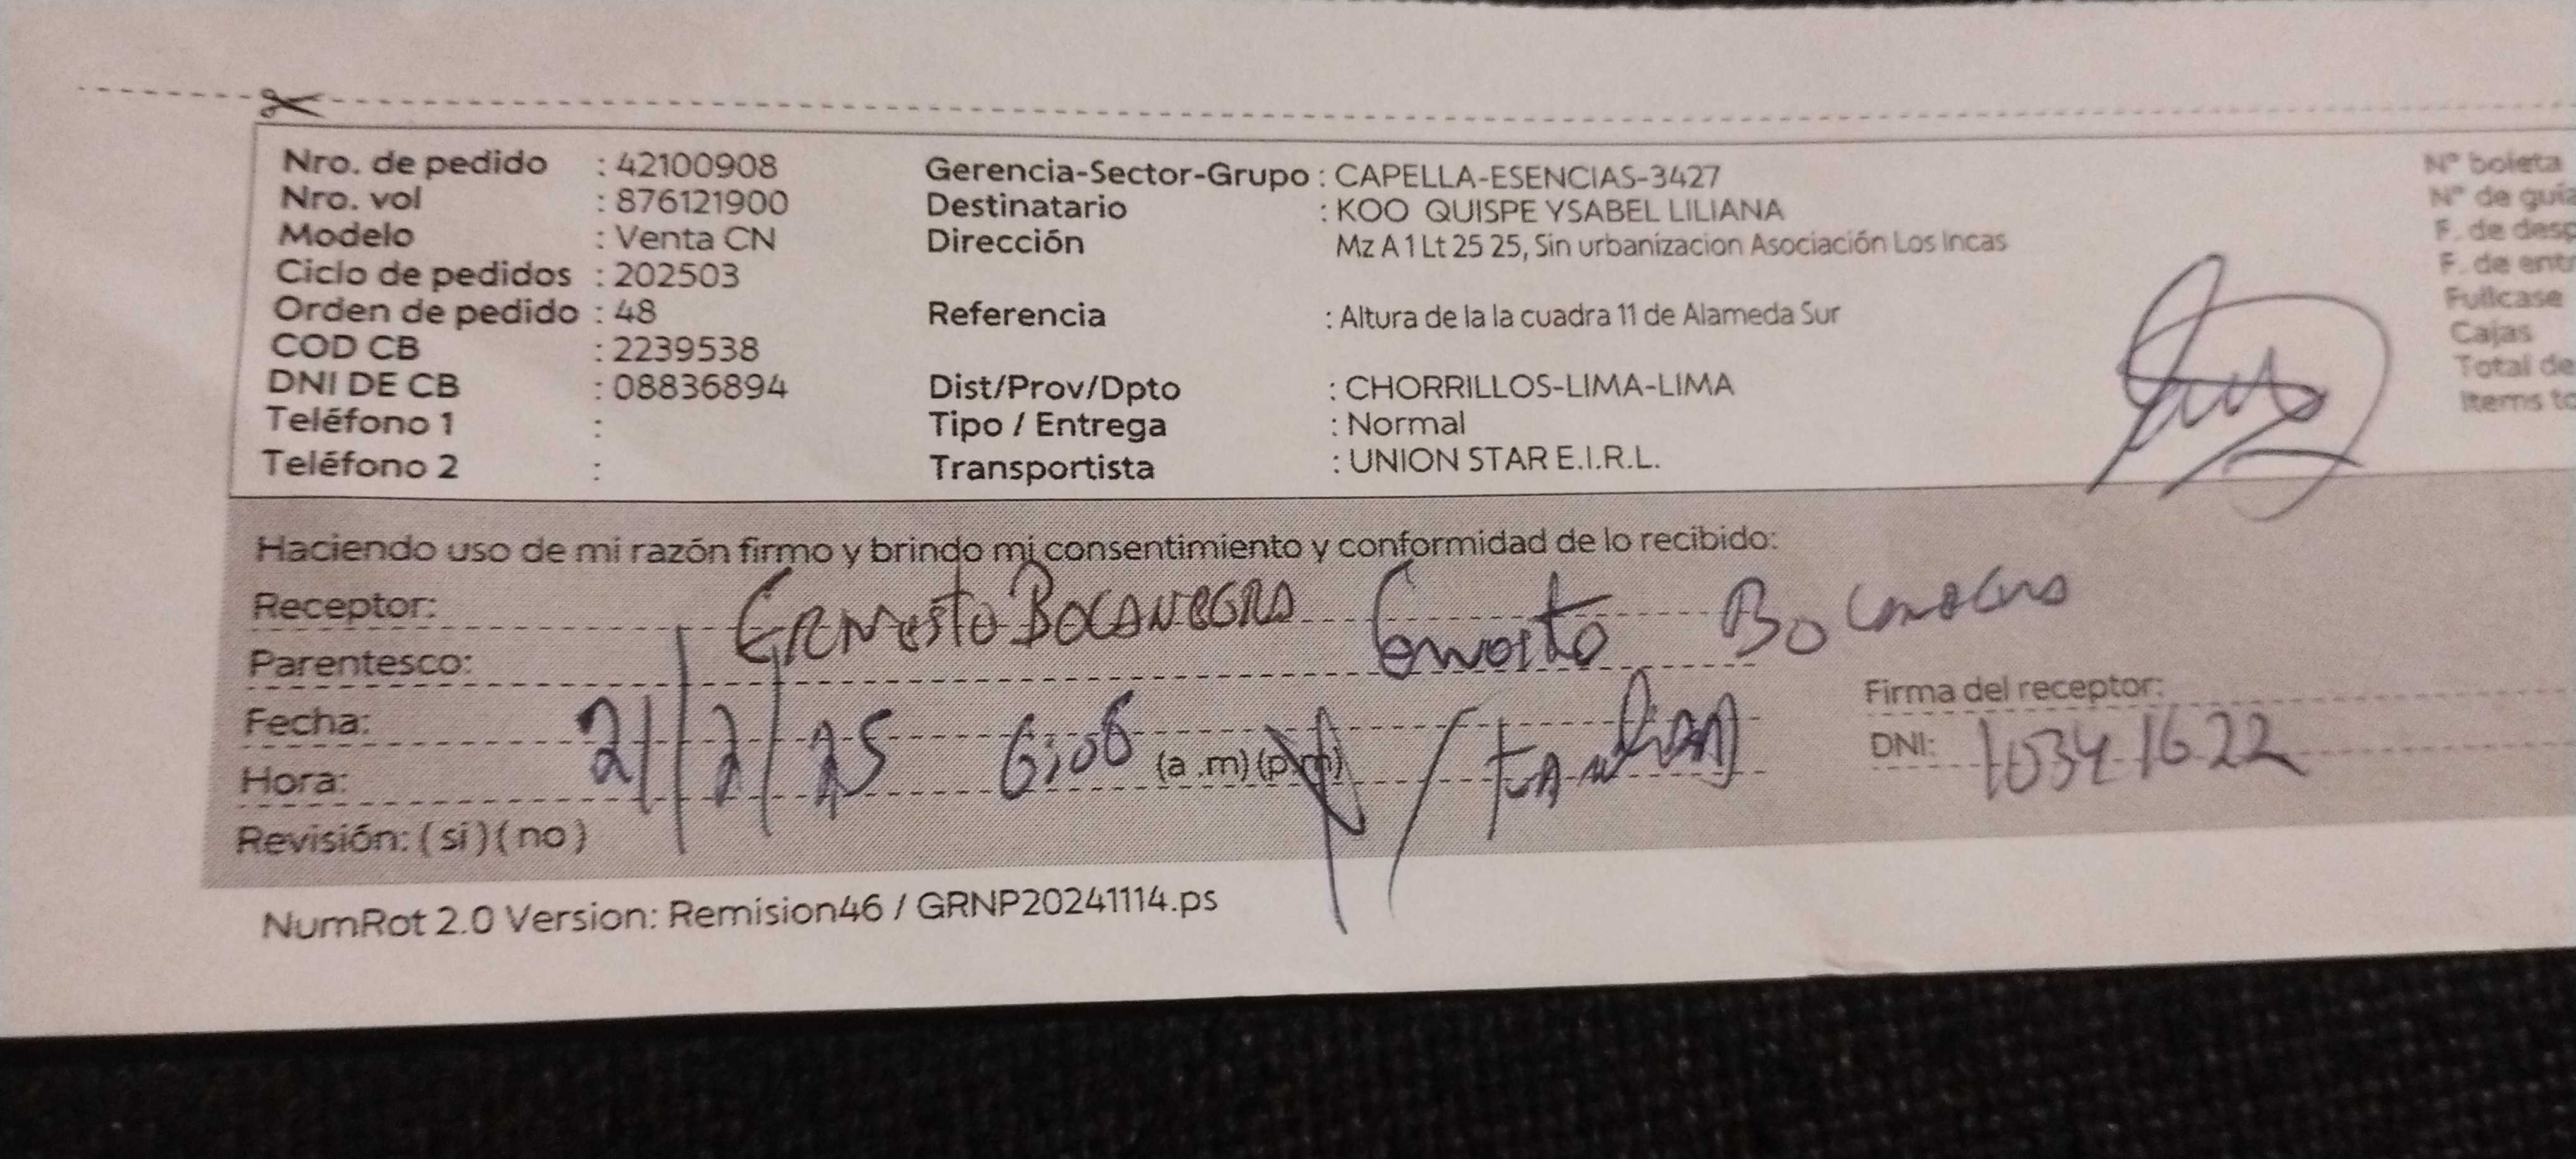 Nro. de pedido : 42100908
Nro. vol : 876121900
Modelo : Venta CN
Ciclo de pedidos : 202503
Orden de pedido : 48
COD CB : 2239538
DNI DE CB : 08836894
Teléfono 1 :
Teléfono 2 :
Gerencia-Sector-Grupo : CAPELLA-ESENCIAS-3427
Destinatario : KOO QUISPE YSABEL LILIANA
Dirección Mz A 1 Lt 25 25, Sin urbanizacion Asociación Los Incas
Referencia : Altura de la la cuadra 11 de Alameda Sur
Dist/Prov/Dpto : CHORRILLOS-LIMA-LIMA
Tipo / Entrega : Normal
Transportista : UNION STAR E.I.R.L.
N° boleta
N° de guía
F. de desp
F. de entr
Fullcase
Cajas
Total de
Items to
Haciendo uso de mi razón firmo y brindo mi consentimiento y conformidad de lo recibido:
Receptor: ERNESTO BOCANEGRA Ernesto Bocanegra
Parentesco:
Fecha: 21/2/25
Hora: 6:06 (a .m) (p.m)
Revisión: ( si ) ( no )
Firma del receptor:
DNI: 10341622
NumRot 2.0 Version: Remision46 / GRNP20241114.ps